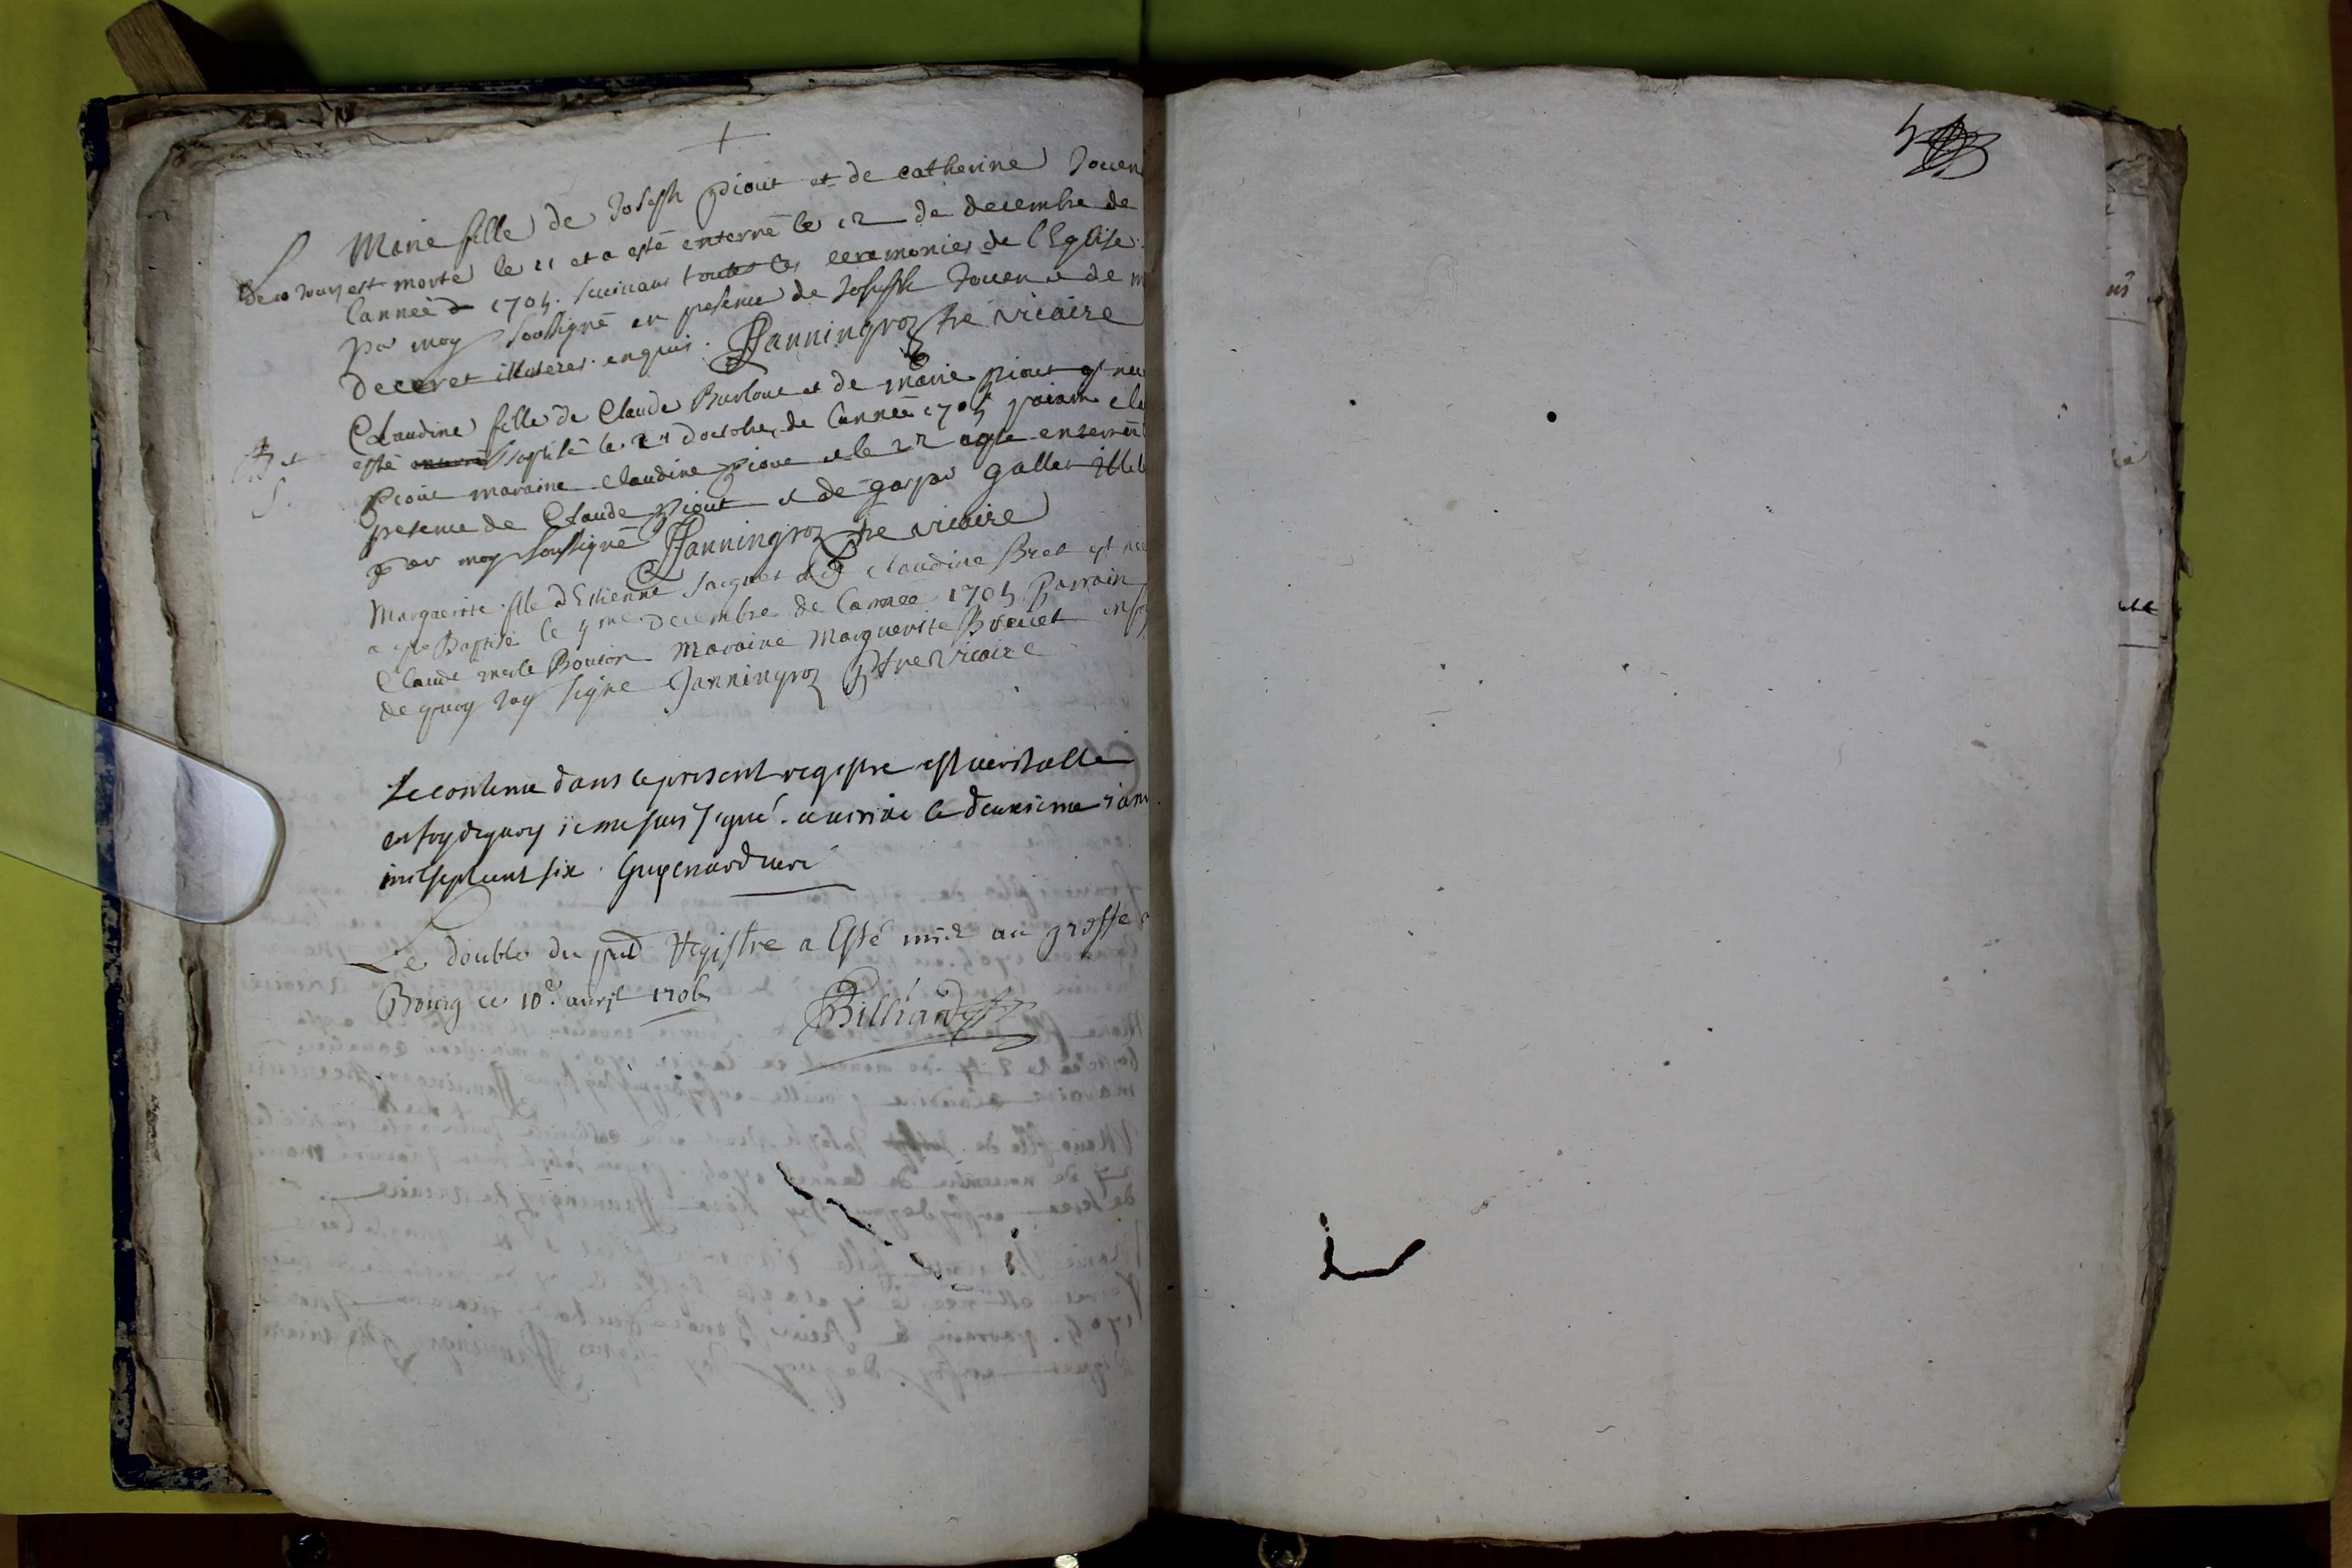 +
S Marie fille de Joseph piout et de catherine Jouen
de 10 jours est morte le 11 et a esté enterré le 12 de decembre de
l'année 1705. suivant toutes les ceremonies de l'Eglise
par moy soussigné en presence de Joseph Jouen et de
deceret illiterez enquis. Janningroz ptre vicaire
Claudine fille de Claude Burlout et de marie piout est née
B et esté baptisé le 21 doctobre de l'année 1705 parain cla
S. piout maraine claudine pioue et le 22 a este enterrée
presence de Claude piout et de gaspar gallet illit
par moy soussigné Janningroz ptre vicaire
Marguerite fille d'Estienne Jacquet et de claudine Bret est née
a este Baptisé le 4me decembre de l'année 1705 Parrain
Claude merle Bouton Maraine Marguerite Brevet en foy
de quoy j'ay signé Janningroz Ptre Vicaire
Le contenu dans le present registre est veritable
en foy de quoy je me suis signé. le deuxieme janv
mil sept cent six. Guyenard curé
Le double du pnt Registre a Esté mis au greffe
Bourg ce 10e avril 1706
Billiard